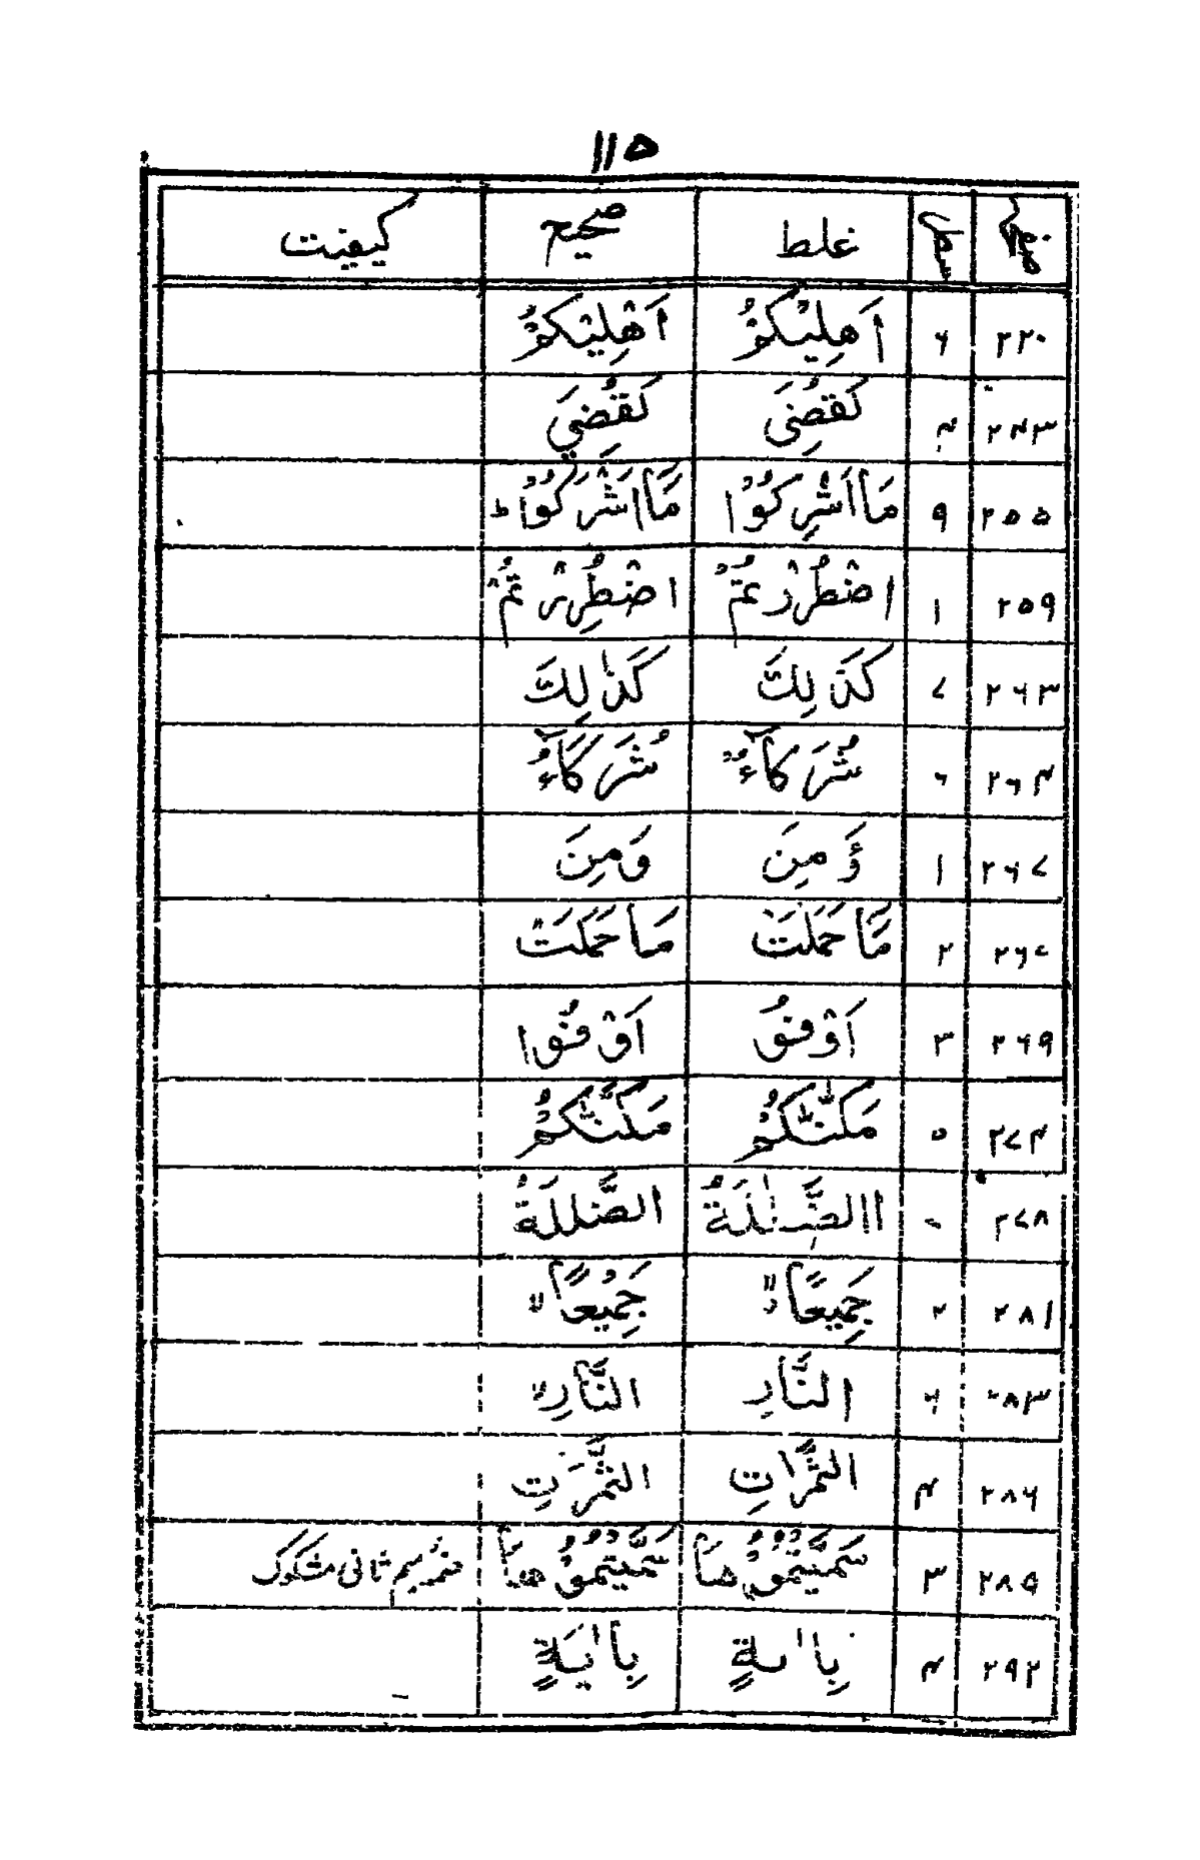 ۱۱۵
صفحہ سطر غلط صحیح کیفیت
۲۲۰ ۶ اَهِلِيْكُمْ اَهْلِيْكُمْ
۲۴۳ ۴ كَقُضِىَ لَقُضِيَ
۲۵۵ ۹ مَا اَشْرِكُوْا مَا اَشْرَكُوْا ط
۲۵۹ ۱ اضْطُرْرْتُمْ اضْطُرِرْتُمْ
۲۶۳ ۷ كَذَلِكَ كَذٰلِكَ
۲۶۴ ۶ شُرَكَآءُ شُرَكَآءُ
۲۶۷ ۱ ؤَمِنَ وَمِنَ
۲۶۷ ۲ مَّا حَمَلَتْ مَا حَمَلَتْ
۲۶۹ ۳ اَوْفُوْ اَوْفُوْا
۲۷۴ ۵ مَكَّنّٰكُمْ مَكَّنّٰكُمْ
۲۷۸ االضَّلٰلَةُ الضَّلٰلَةُ
۲۸۱ ۲ جَمِيعًا لا جَمِيْعًا لا
۲۸۳ ۶ النَّارِ النَّارِ لا
۲۸۶ ۴ الثَّمَرَاتِ الثَّمَرٰتِ
۲۸۹ ۳ سَمَّيْتُمُوْهَا سَمَّيْتُمُوْهَا ثانی مشکوک
۲۹۲ ۴ بِاٰيةٍ بِاٰيَةٍ